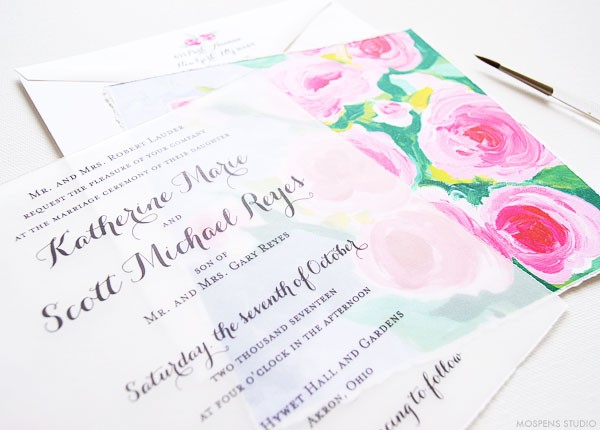 Mr. and Mrs. Robert Lauder
request the pleasure of your company
at the marriage ceremony of their daughter
Katherine Marie
and
Scott Michael Reyes
son of
Mr. and Mrs. Gary Reyes
Saturday, the seventh of October
two thousand seventeen
at four o'clock in the afternoon
Hywet Hall and Gardens
Akron, Ohio
to follow
MOSPENS STUDIO